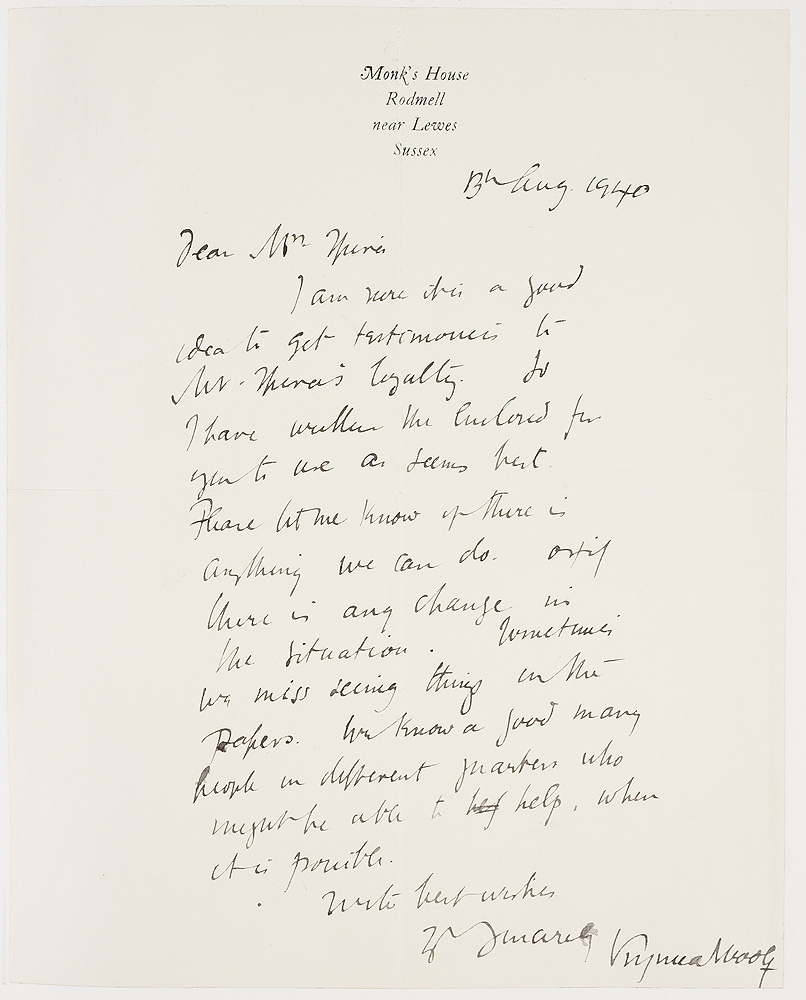 Monk's House
Rodmell
near Lewes
Sussex
13th Aug. 1940
Dear Mrs
I am sure it is a good
idea to get testimonies to
Mr. loyalty. So
I have written the enclosed for
you to use as seems best.
Please let me know if there is
anything we can do. or if
there is any change in
the situation. Sometimes
we miss seeing things in the
papers. We know a good many
people in different quarters who
might be able to help, when
it is possible.
With best wishes
Yr Sincerely Virginia Woolf